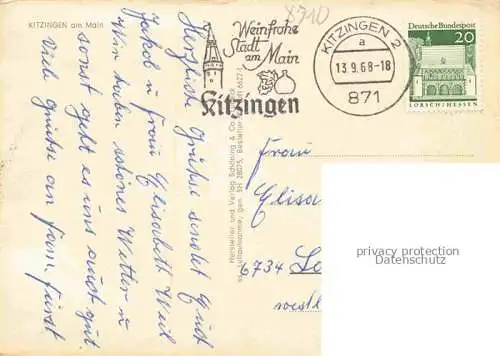 KITZINGEN am Main
Herzliche Grüße sendet Euch
Jakob u. Frau Elisabeth Weil
Wir haben schönes Wetter u
sonst geht es uns auch gut.
Viele Grüße an Fam. Fürst
Hersteller und Verlag Schöning & Co
Weinfrohe
Stadt
am Main
Kitzingen
KITZINGEN 2
a
13.9.68-18
871
Deutsche Bundespost
20
LORSCH/HESSEN
8710
Frau
Elisa
6734
privacy protection
Datenschutz